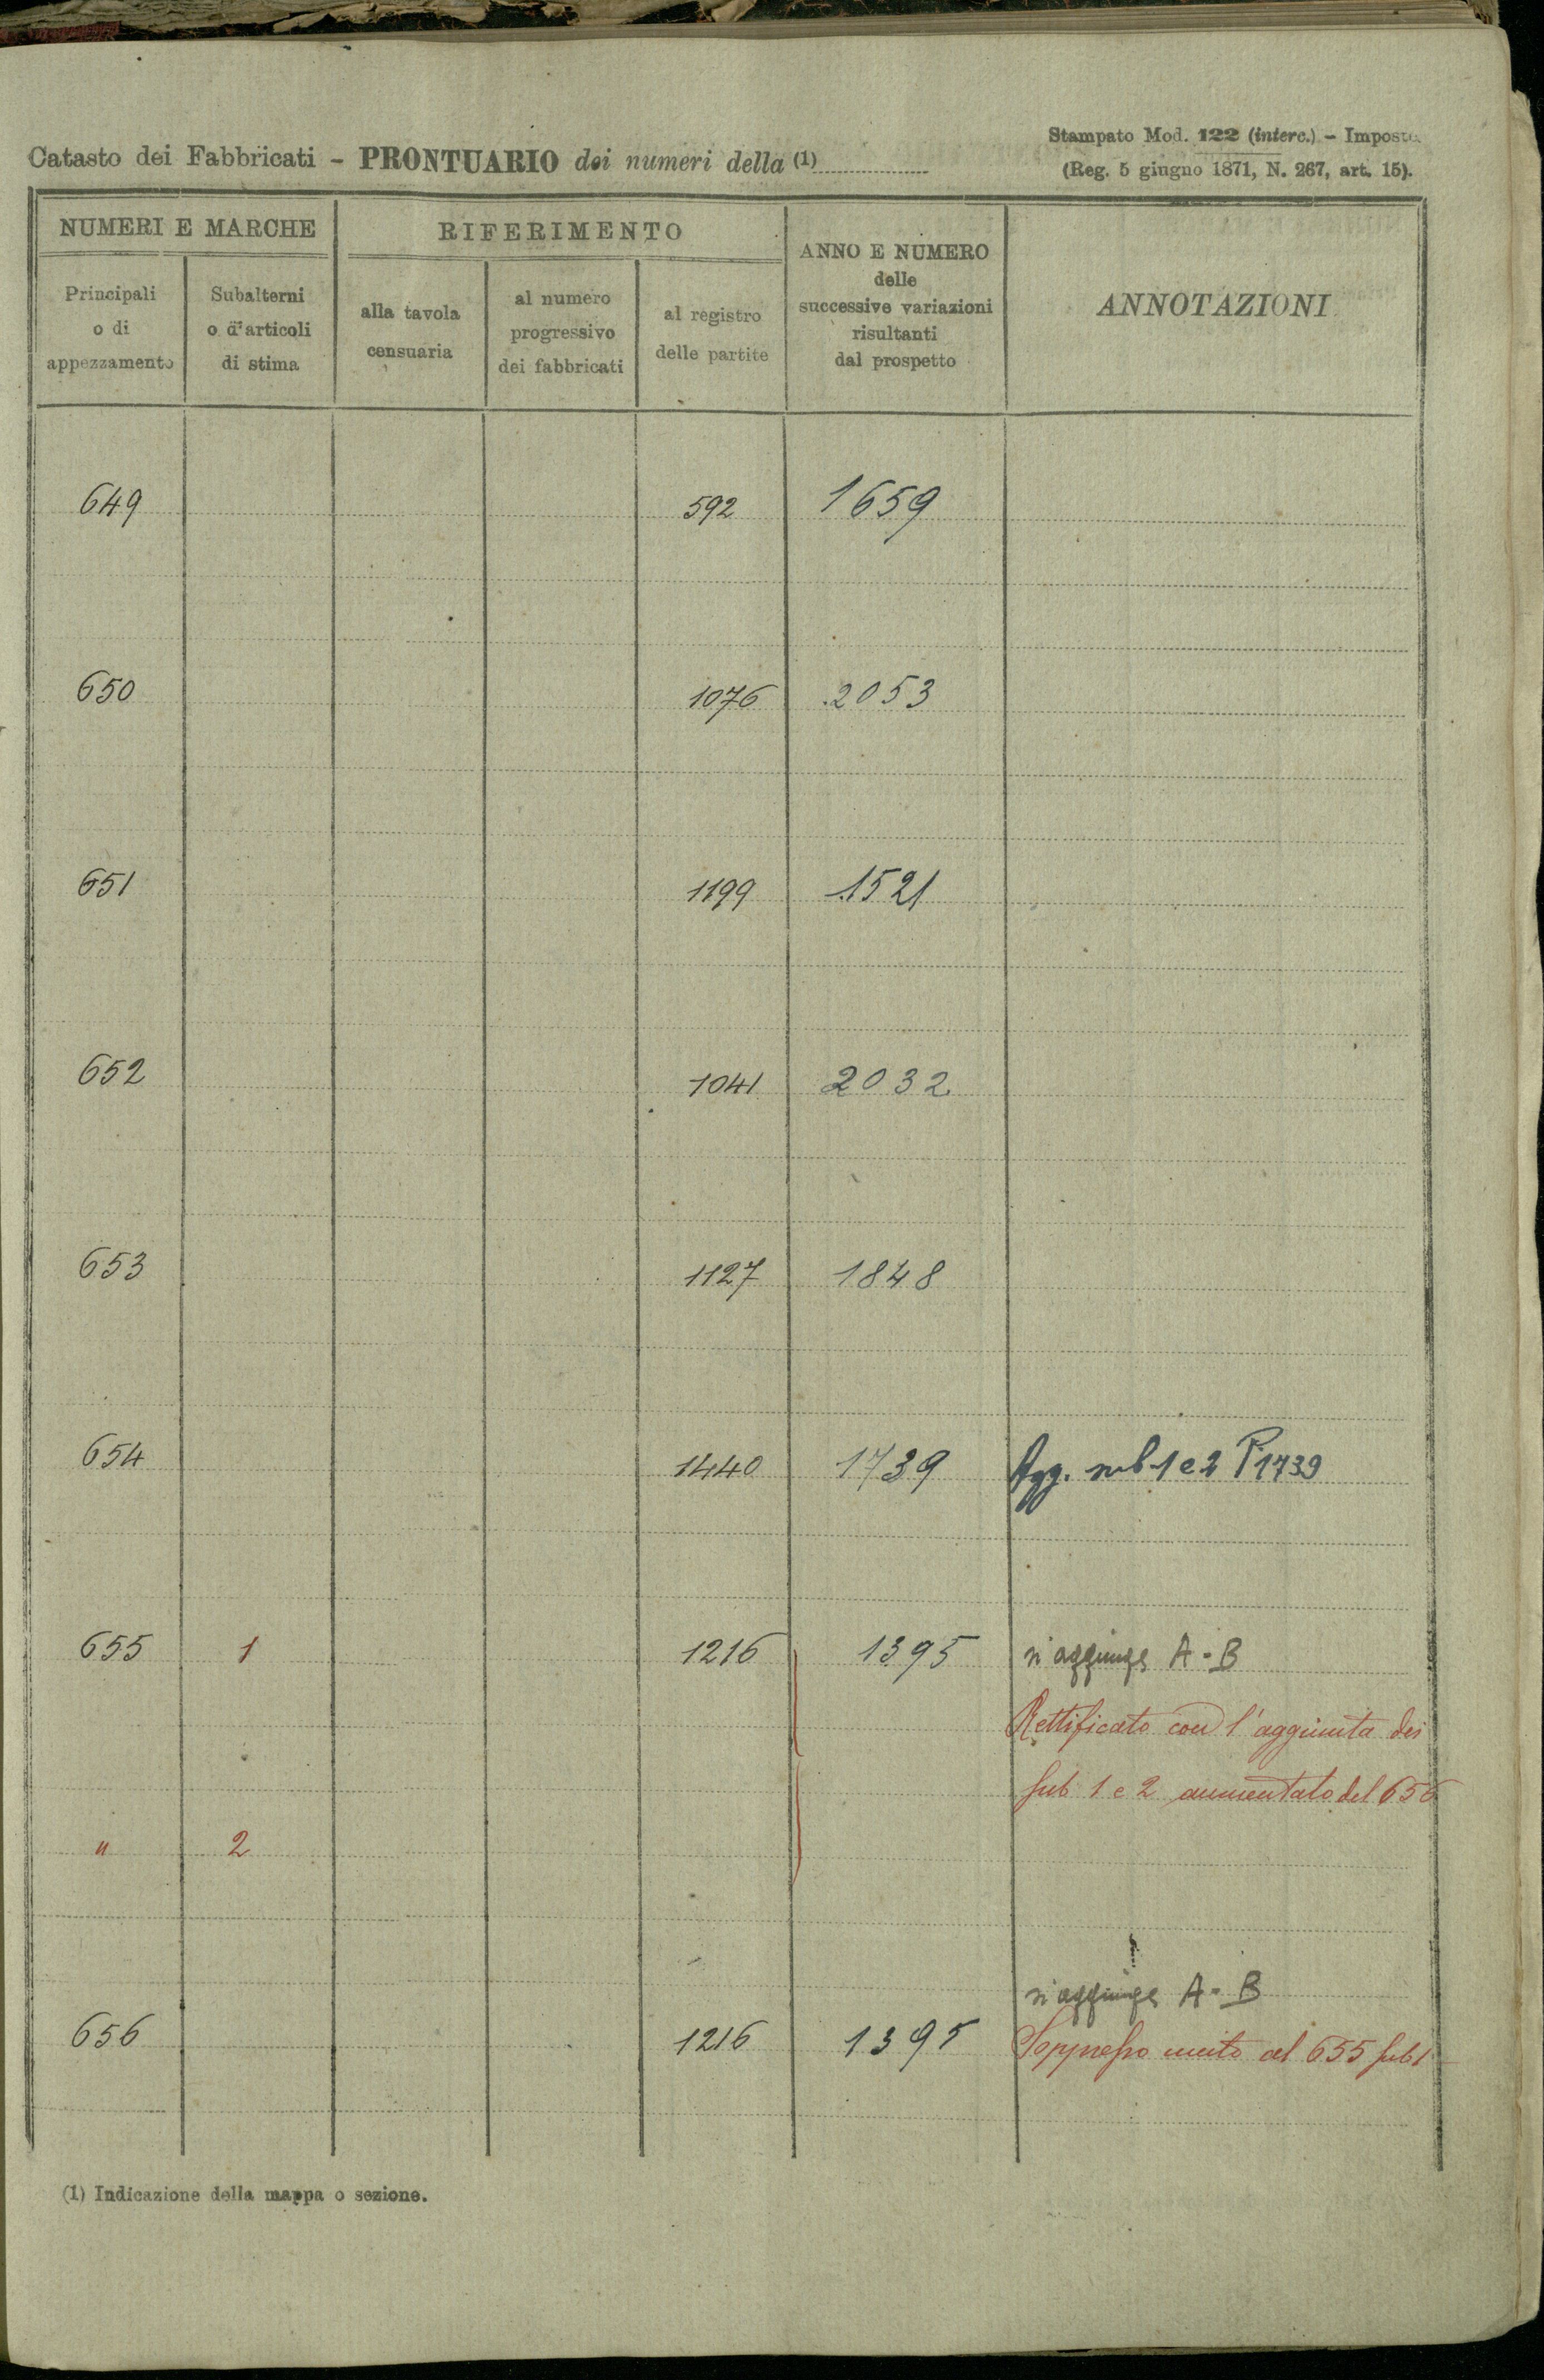 Stampato Mod. 122 (interc.) - Imposte
Catasto dei Fabbricati - PRONTUARIO dei numeri della (1)
(Reg. 5 giugno 1871, N. 267, art. 15).
NUMERI E MARCHE
RIFERIMENTO
ANNO E NUMERO
delle
successive variazioni
risultanti
dal prospetto
ANNOTAZIONI
Principali
o di
appezzamento
Subalterni
o d'articoli
di stima
alla tavola
censuaria
al numero
progressivo
dei fabbricati
al registro
delle partite
649 592 1659
650 1076 2053
651 1199 1521
652 1041 2032
653 1127 1848
654 1440 1739 Agg. sub 1 e 2 P 1739
655 1 1216 1395 si aggiunge A - B
Rettificato con l'aggiunta dei
sub 1 e 2 aumentato del 656
" 2
si aggiunge A - B
656 1216 1395 Soppresso unito al 655 sub 1
(1) Indicazione della mappa o sezione.